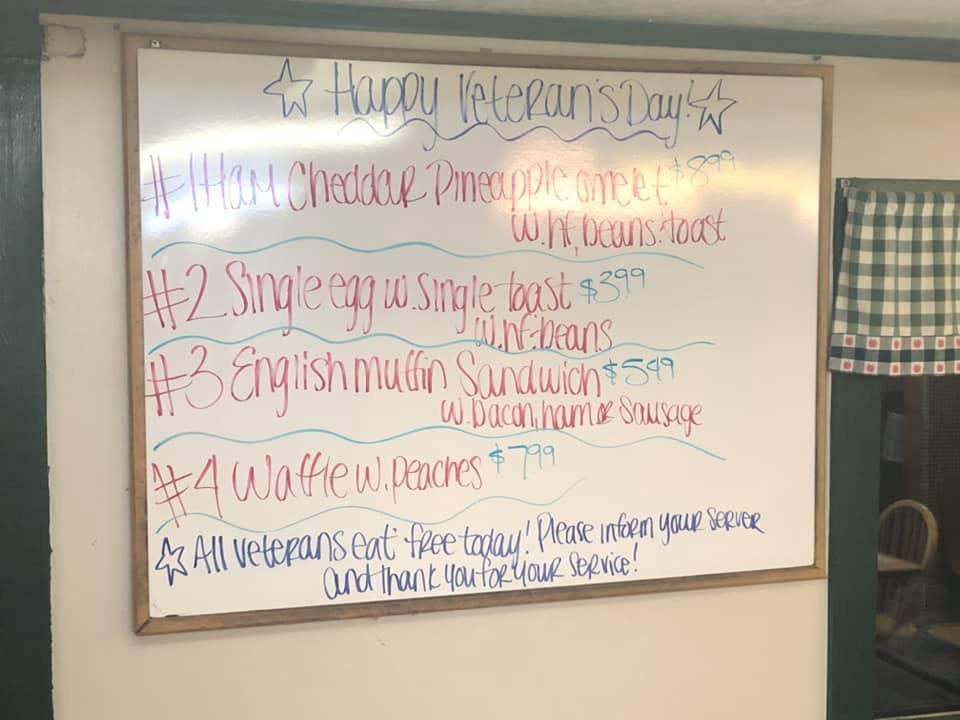 Happy Veteran's Day!
#1 Ham Cheddar Pineapple omelet $8.99
w. hf, beans. toast
#2 Single egg w. single toast $3.99
w. hf. beans
#3 English muffin Sandwich $5.49
w. bacon, ham or Sausage
#4 Waffle w. peaches $7.99
All veterans eat free today! Please inform your server
and thank you for your service!